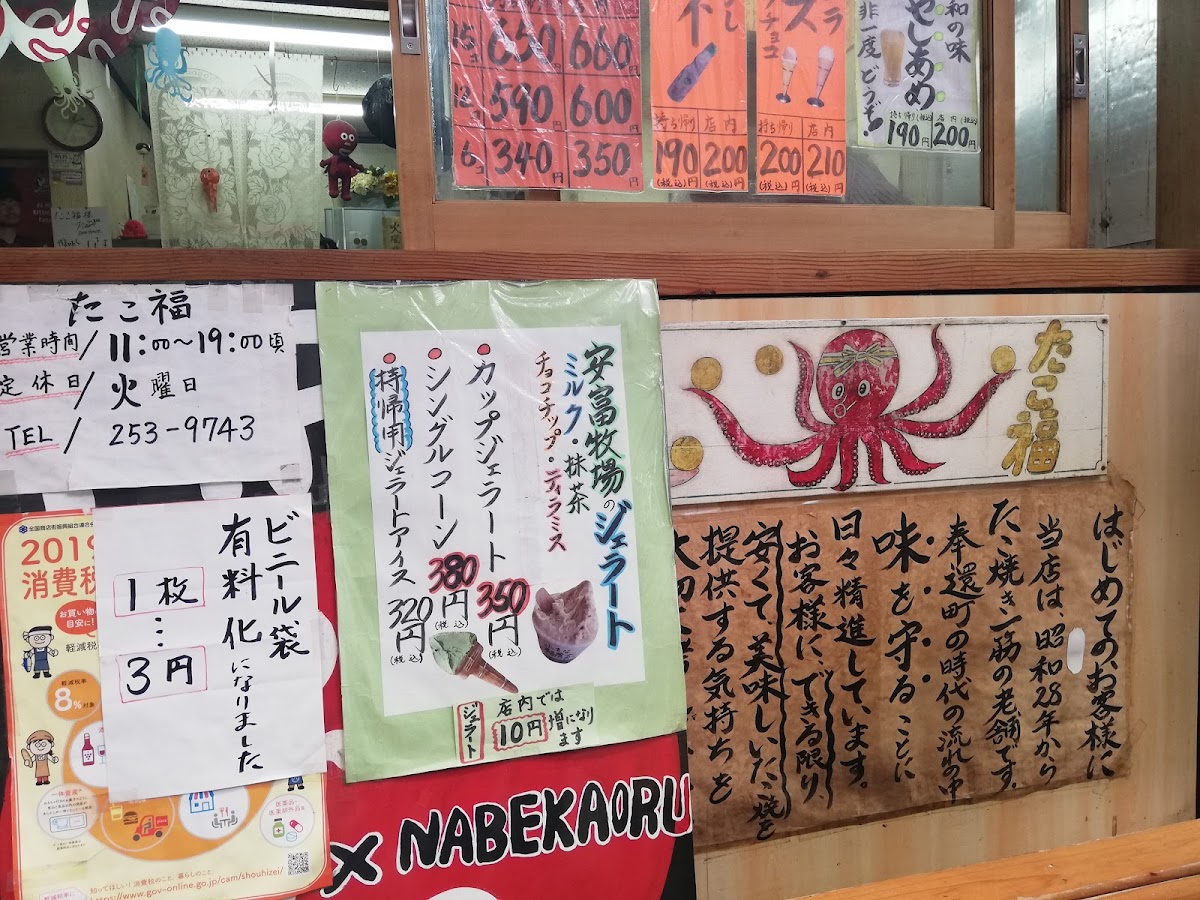 650 660
12 590 600
6 340 350
持ち帰り 店内
190円 200円
(税込) (税込)
チョコ
持ち帰り 店内
200円 210円
(税込) (税込)
昭和の味
ひやしあめ
是非一度どうぞ!
持ち帰り(税込) 店内(税込)
190円 200円
たこ福
営業時間/11:00〜19:00頃
定休日/火曜日
TEL/253-9743
ビニール袋
有料化になりました
1枚…3円
全国商店街振興組合連合会
2019
消費税
お買い物の
目安に!
軽減税
軽減税率
8%対象
知ってほしい!消費税のこと、暮らしのこと。
https://www.gov-online.go.jp/cam/shouhizei/
安富牧場のジェラート
ミルク・抹茶
チョコチップ・ティラミス
カップジェラート 350円(税込)
シングルコーン 380円(税込)
持帰用ジェラートアイス 320円(税込)
ジェラート
店内では
10円増になり
ます
× NABEKAORU
たこ福
はじめてのお客様に
当店は昭和28年から
たこ焼き一筋の老舗です。
奉還町の時代の流れの中
味を守ることに
日々精進しています。
お客様に…できる限り、
安くて美味しいたこ焼を
提供する気持ちを
大切